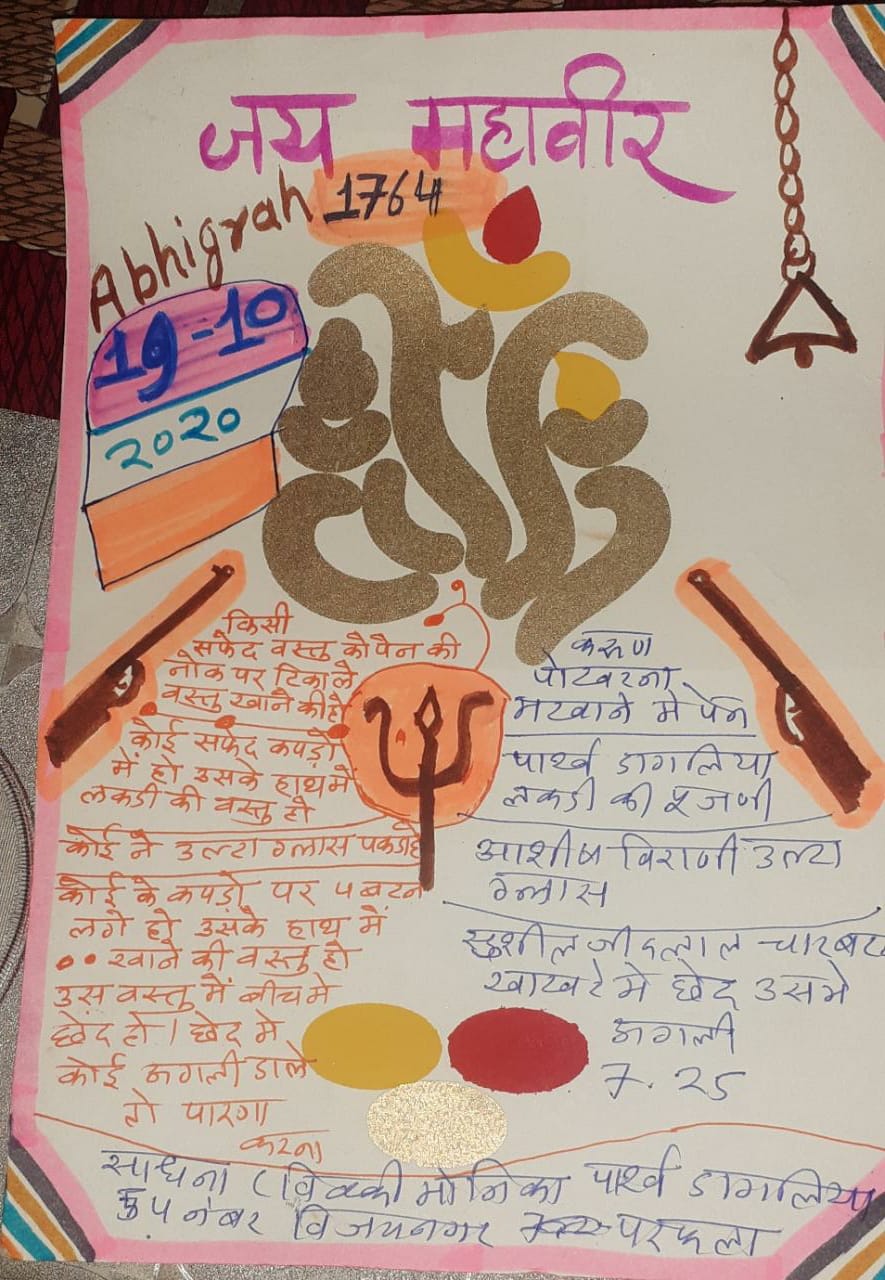 जय महावीर
Abhigrah 1764
19-10
2020
किसी
सफेद वस्तु को पैन की
नोक पर टिकाले
वस्तु खाने की हो
कोई सफेद कपड़ो
में हो उसके हाथ में
लकडी की वस्तु हो
कोई ने उल्टा ग्लास पकडा हो
कोई के कपड़ो पर 4 बटन
लगे हो उसके हाथ में
खाने की वस्तु हो
उस वस्तु में बीच मे
छेद हो। छेद मे
कोई ऊगली डाले
तो पारणा
करना
करूण
पोखरना
मखाने मे पेन
पार्श्व डागलिया
लकडी की पूजणी
आशीष विराणी उल्टा
ग्लास
सुशील जी दलाल चार बटन
खाखरे मे छेद उसमे
ऊगली
7.25
साधना (विक्की मोनिका पार्श्व डागलिया
4 नंबर विजयनगर पर फला